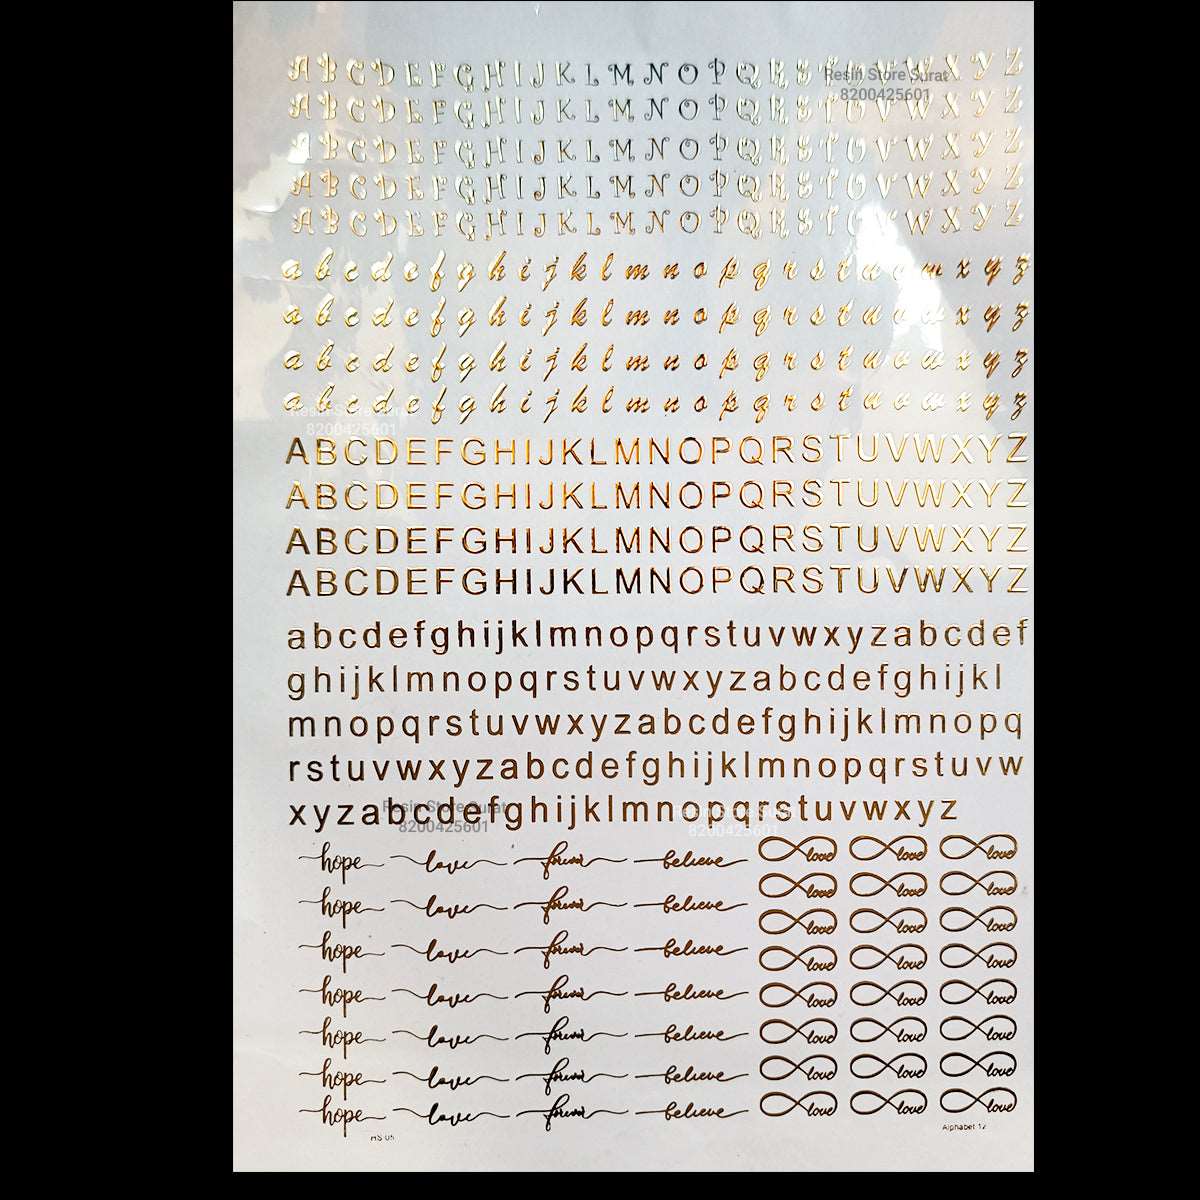 A B C D E F G H I J K L M N O P Q R S T U V W X Y Z
Resin Store Surat
8200425601
A B C D E F G H I J K L M N O P Q R S T U V W X Y Z
A B C D E F G H I J K L M N O P Q R S T U V W X Y Z
A B C D E F G H I J K L M N O P Q R S T U V W X Y Z
A B C D E F G H I J K L M N O P Q R S T U V W X Y Z
a b c d e f g h i j k l m n o p q r s t u v w x y z
a b c d e f g h i j k l m n o p q r s t u v w x y z
a b c d e f g h i j k l m n o p q r s t u v w x y z
a b c d e f g h i j k l m n o p q r s t u v w x y z
Resin Store Surat
8200425601
ABCDEFGHIJKLMNOPQRSTUVWXYZ
ABCDEFGHIJKLMNOPQRSTUVWXYZ
ABCDEFGHIJKLMNOPQRSTUVWXYZ
ABCDEFGHIJKLMNOPQRSTUVWXYZ
abcdefghijklmnopqrstuvwxyzabcdef
ghijklmnopqrstuvwxyzabcdefghijkl
mnopqrstuvwxyzabcdefghijklmnopq
rstuvwxyzabcdefghijklmnopqrstuvw
xyzabcdefghijklmnopqrstuvwxyz
Resin Store Surat Resin Store Surat
8200425601 8200425601
hope love forever believe love love love
hope love forever believe love love love
hope love forever believe love love love
hope love forever believe love love love
hope love forever believe love love love
hope love forever believe love love love
hope love forever believe love love love
love love love
HS 05 Alphabet 12